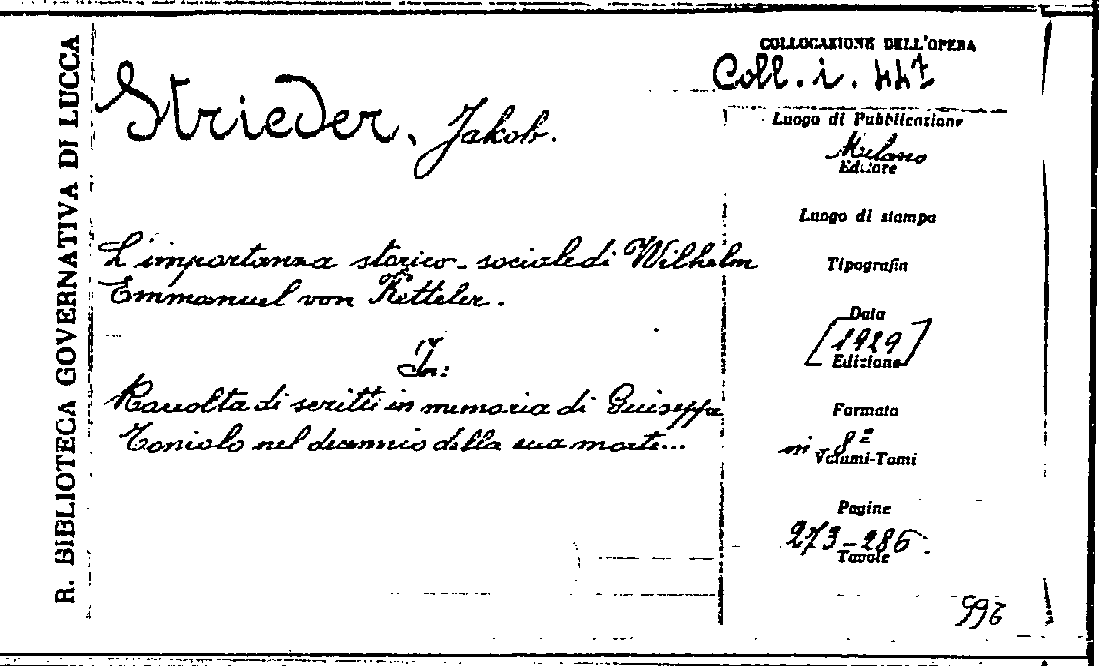 R. BIBLIOTECA GOVERNATIVA DI LUCCA
COLLOCAZIONE DELL'OPERA
Coll. i. 447
Strieder, Jakob.
L'importanza storico-sociale di Wilhelm
Emmanuel von Ketteler.
In:
Raccolta di scritti in memoria di Giuseppe
Toniolo nel decennio della sua morte...
Luogo di Pubblicazione
Milano
Editore
Luogo di stampa
Tipografia
Data
[1929]
Edizione
Formato
in 8º
Volumi-Tomi
Pagine
273-286.
Tavole